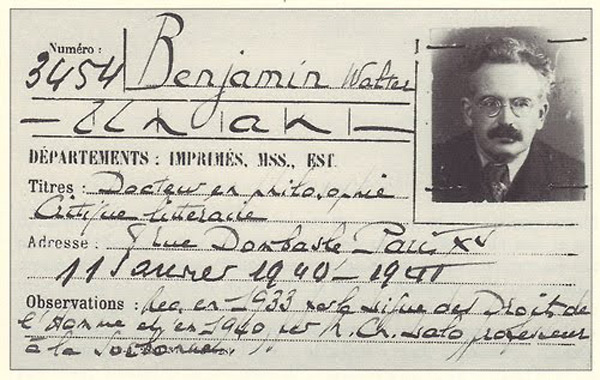 Numéro :
3454
Benjamin Walter
— Un | an | —
DÉPARTEMENTS : IMPRIMÉS, MSS., EST.
Titres : Docteur en philosophie
Critique littéraire
Adresse : rue Dombasle Paris XV
11 Janvier 1940 - 1941
Observations : Rec. en 1933 par la Ligue des Droits de
l'Homme et en 1940, par professeur
à la Sorbonne.